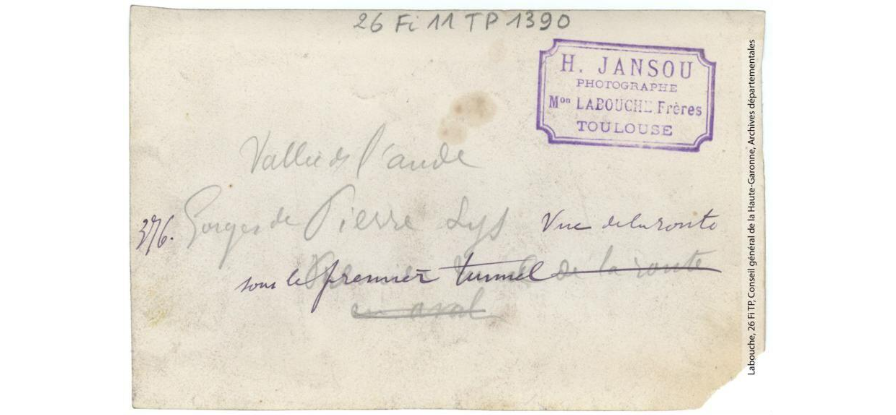 26 Fi 11 TP 1390
H. JANSOU
PHOTOGRAPHE
Mon LABOUCHE Frères
TOULOUSE
Vallée de l'aude
376. Gorges de Pierre Lys Vue de la route
sous le premier tunnel de la route
en aval
Labouche, 26 Fi TP, Conseil général de la Haute-Garonne, Archives départementales